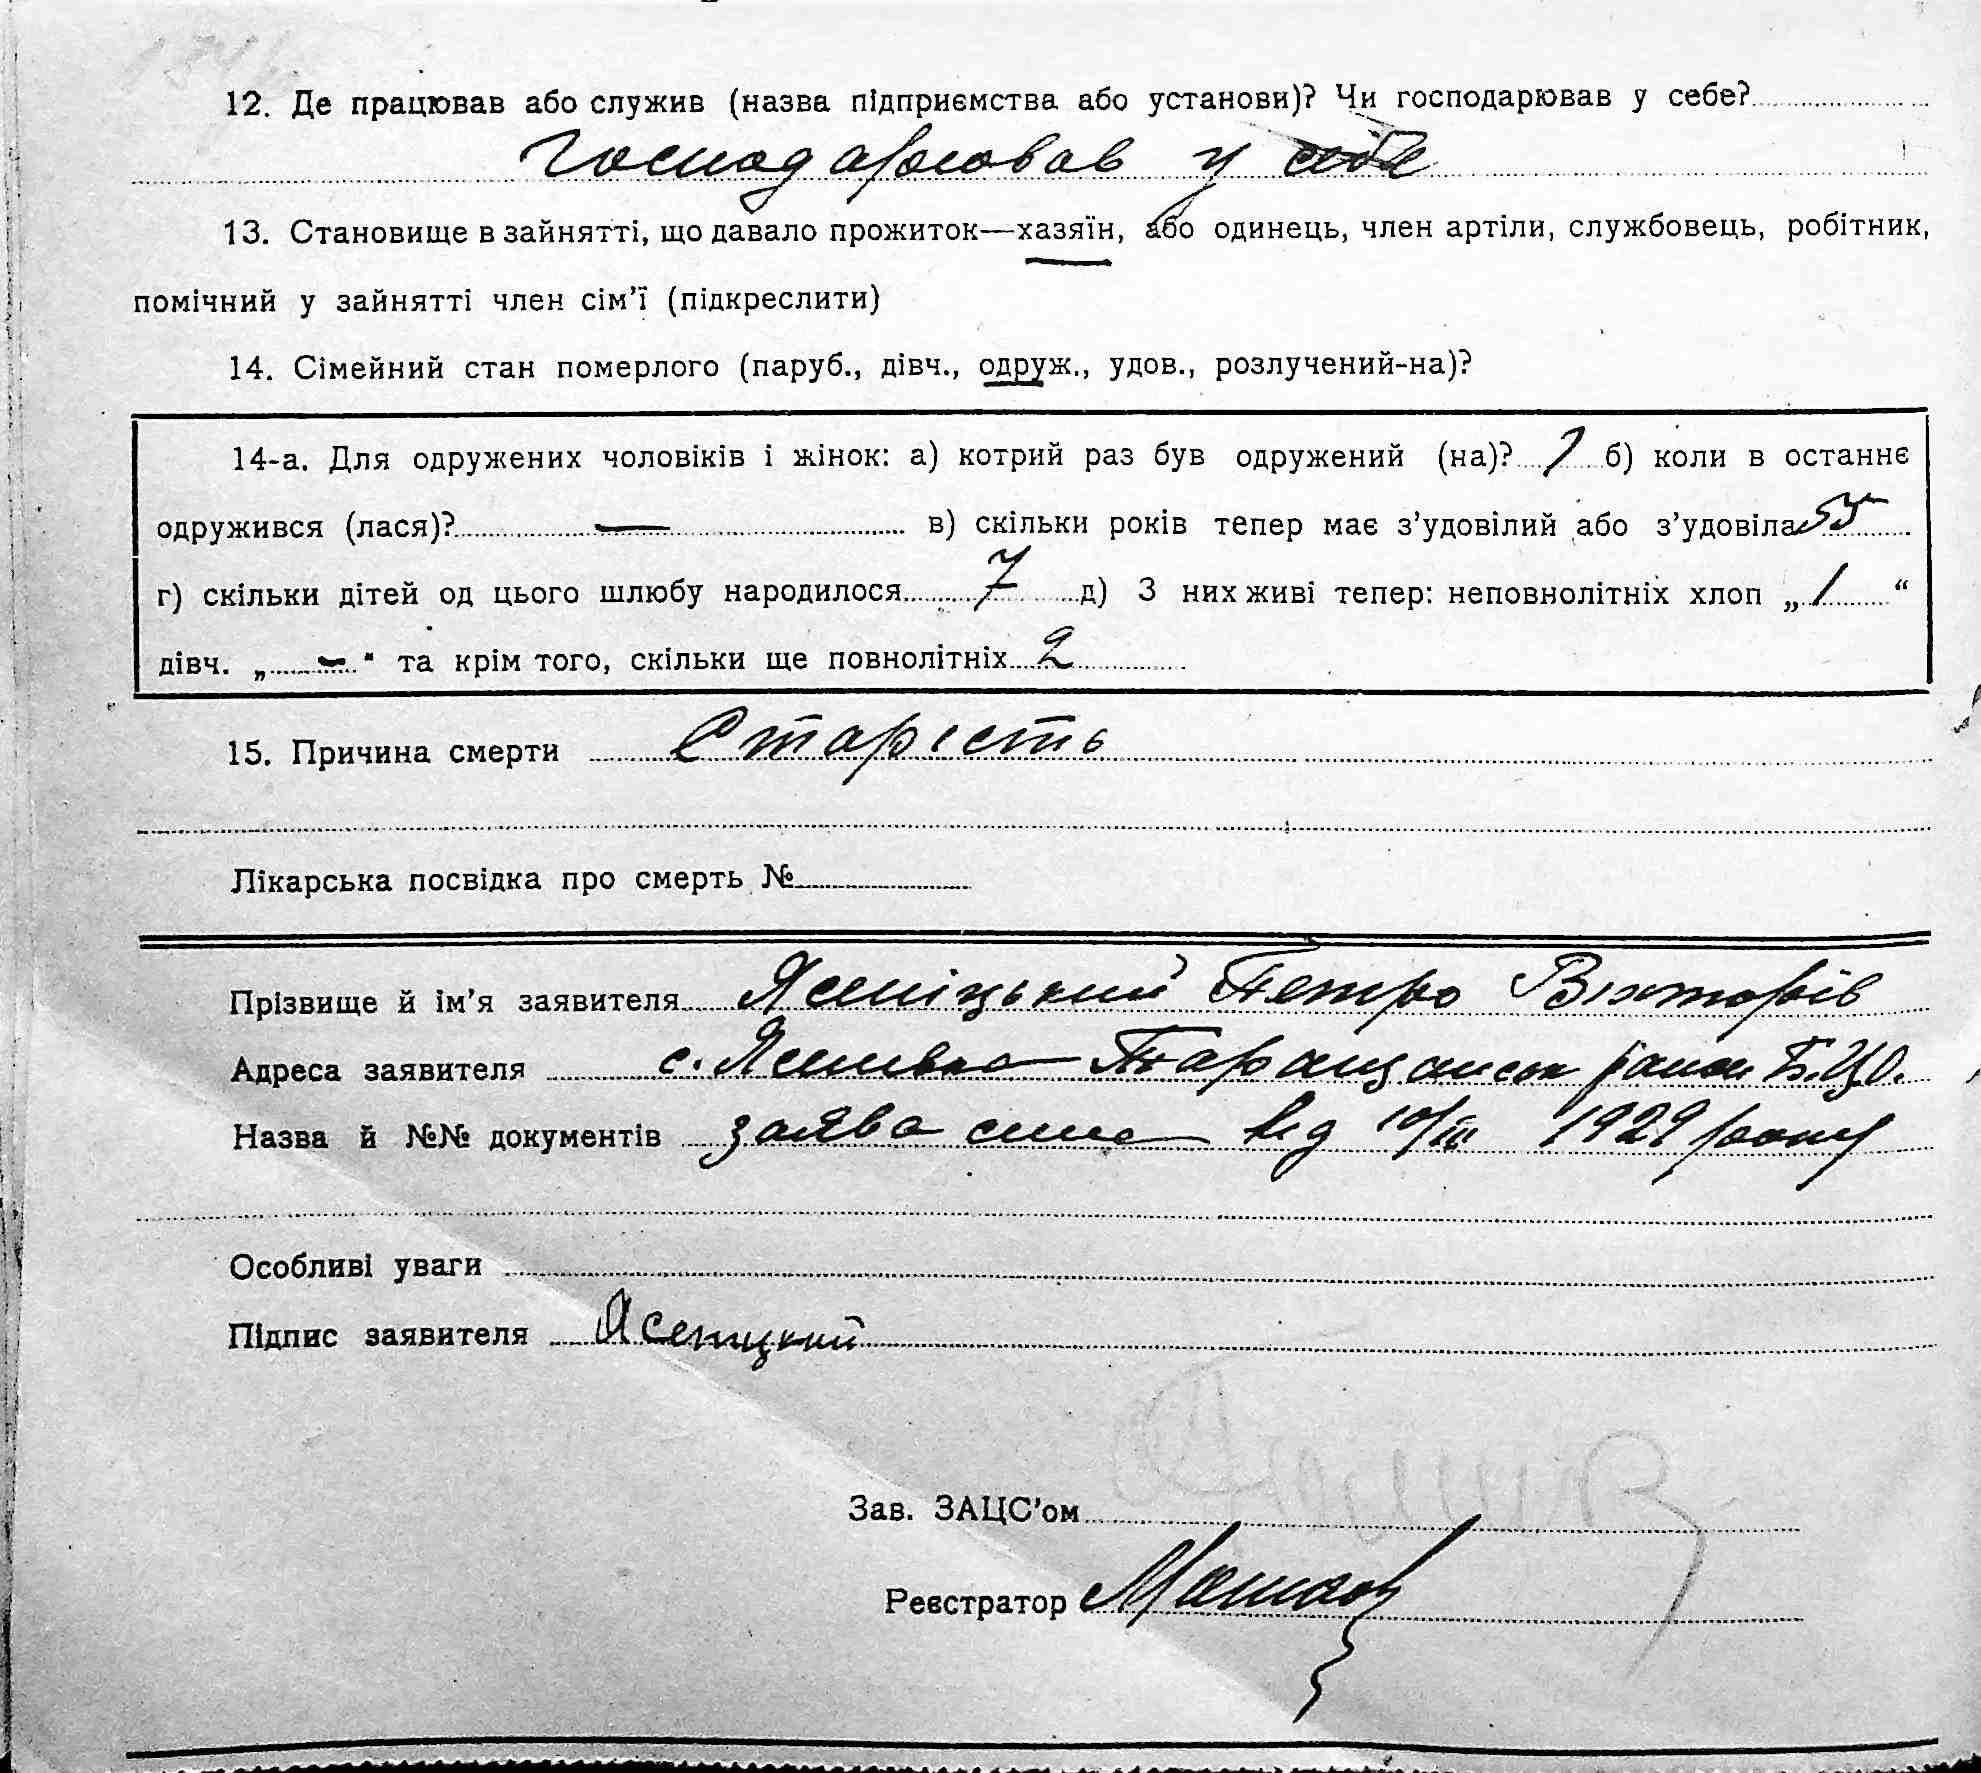 12. Де працював або служив (назва підприємства або установи)? Чи господарював у себе?
Господарював у себе
13. Становище в зайнятті, що давало прожиток—хазяїн, або одинець, член артіли, службовець, робітник,
помічний у зайнятті член сім’ї (підкреслити)
14. Сімейний стан померлого (паруб., дівч., одруж., удов., розлучений-на)?
14-а. Для одружених чоловіків і жінок: а) котрий раз був одружений (на)? 1 б) коли в останнє
одружився (лася)? — в) скільки років тепер має з’удовілий або з’удовіла 55
г) скільки дітей од цього шлюбу народилося 7 д) З них живі тепер: неповнолітніх хлоп „ 1 “
дівч. „ — “ та крім того, скільки ще повнолітніх 2
15. Причина смерти Старість
Лікарська посвідка про смерть №
Прізвище й ім’я заявителя Ясеніцький Петро Вікторів
Адреса заявителя с. Таращанськ район Б.Ц.О.
Назва й №№ документів заява сина від 10/III 1929 року
Особливі уваги
Підпис заявителя Ясеницкий
Зав. ЗАЦС’ом
Реєстратор